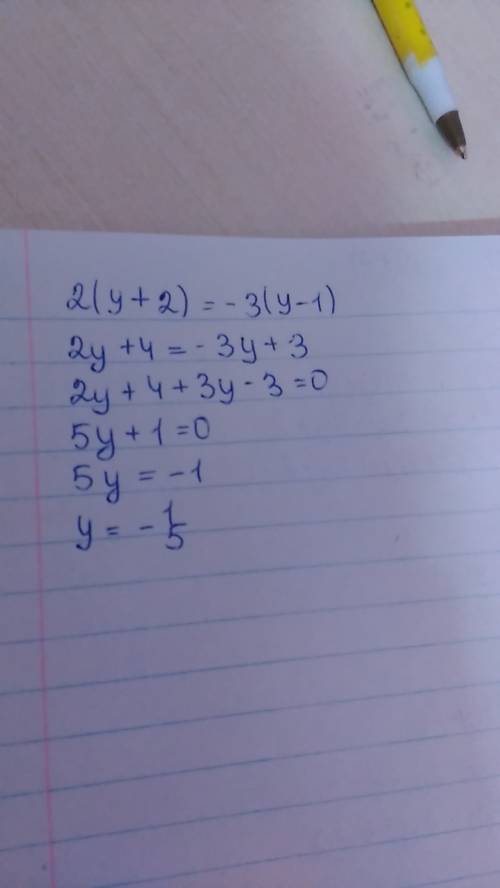 2(y+2) = -3(y-1)
2y+4 = -3y+3
2y+4+3y-3=0
5y+1=0
5y = -1
y = -1/5